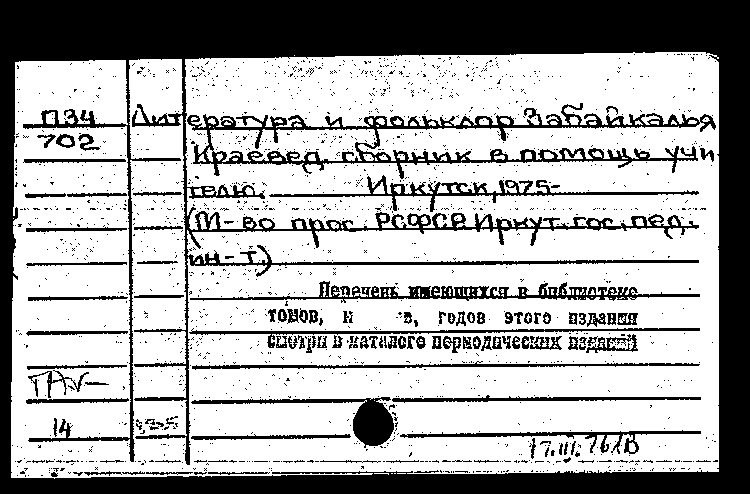 П34 Литература и фольклор Забайкалья
702 Краевед. сборник в помощь учи
телю. Иркутск, 1975-
(М-во прос. РСФСР Иркут. гос. пед.
ин-т.)
Перечень имеющихся в библиотеке
томов, в, годов этого издания
смотри в каталоге периодических изданий
14
17.III.76